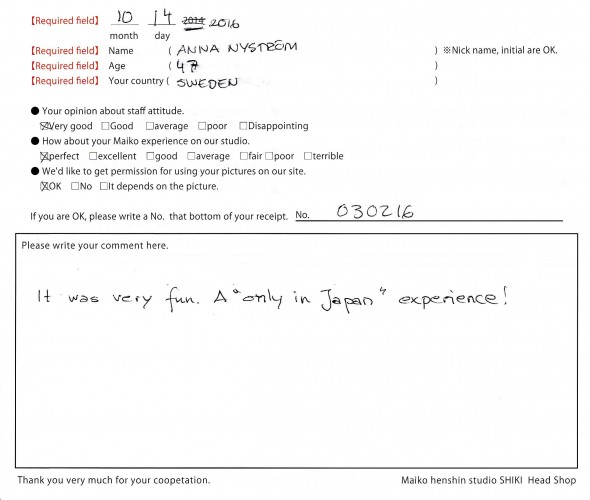 【Required field】 10 14 2014 2016
month day
【Required field】 Name ( ANNA NYSTRÖM ) ※Nick name, initial are OK.
【Required field】 Age ( 47 )
【Required field】 Your country ( SWEDEN )
● Your opinion about staff attitude.
☒Very good □Good □average □poor □Disappointing
● How about your Maiko experience on our studio.
☒perfect □excellent □good □average □fair □poor □terrible
● We'd like to get permission for using your pictures on our site.
☒OK □No □It depends on the picture.
If you are OK, please write a No. that bottom of your receipt. No. 030216
Please write your comment here.
It was very fun. A "only in Japan" experience!
Thank you very much for your coopetation. Maiko henshin studio SHIKI Head Shop